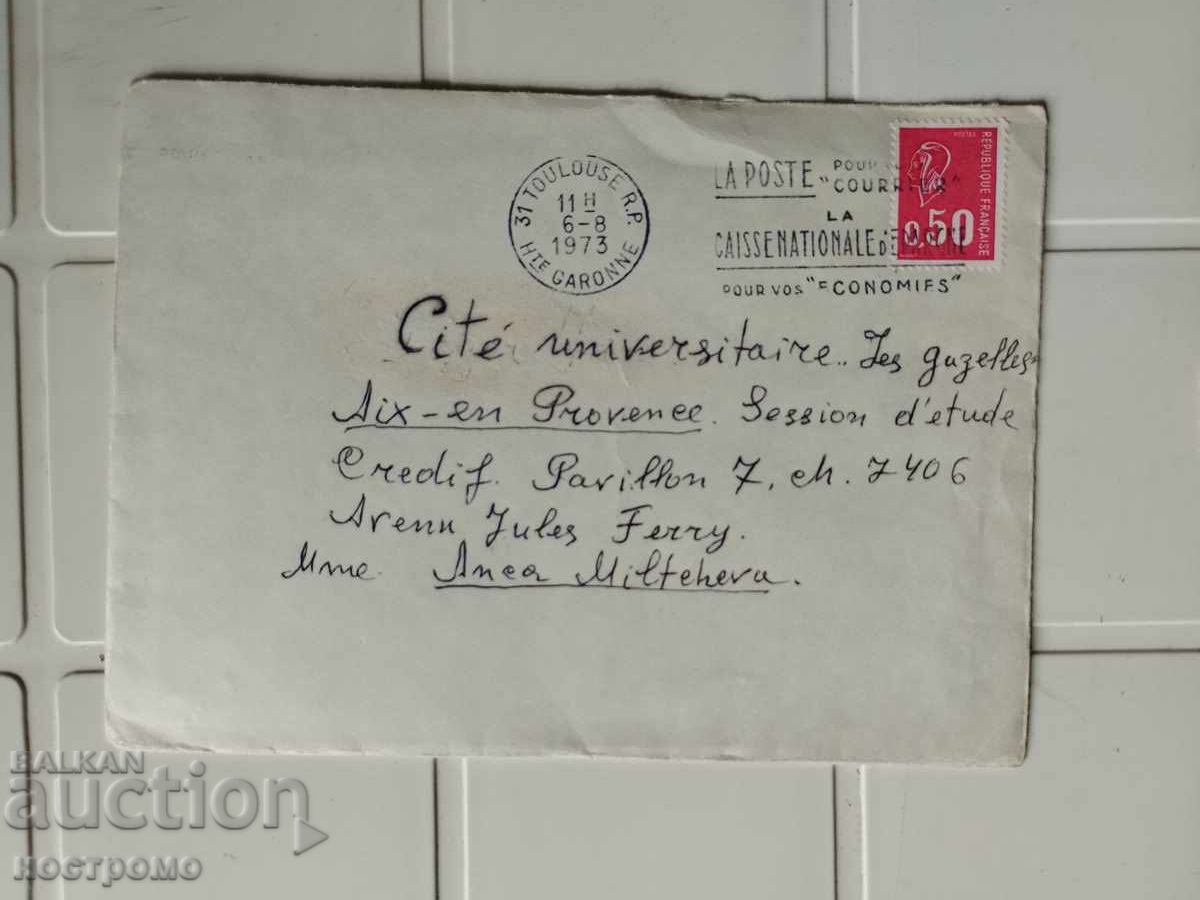 31 TOULOUSE R.P.
11 H
6-8
1973
HTE GARONNE
LA POSTE POUR
"COURRIER"
LA
CAISSE NATIONALE D'EPARGNE
POUR VOS "ECONOMIES"
POSTES
REPUBLIQUE FRANÇAISE
0,50
Cité universitaire.. Les gazelles
Aix-en Provence. Session d'étude
Credif. Pavillon 7, ch. 7406
Avenu Jules Ferry.
Mme. Anea Miltcheva.
BALKAN
auction
костромо